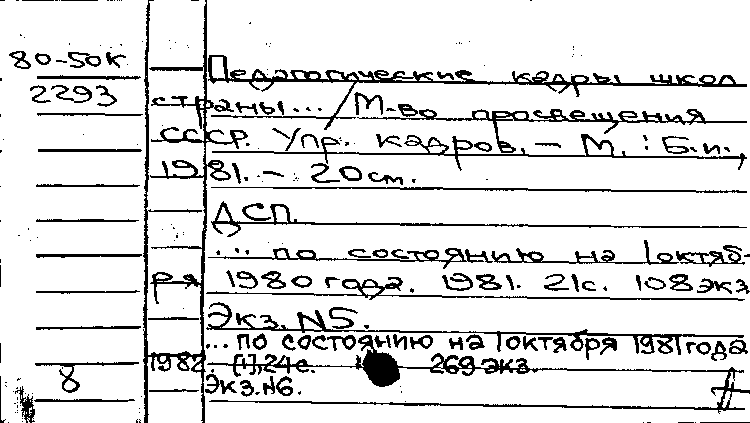 80-50к
Педагогические кадры школ
2293
страны... / М-во просвещения
СССР. Упр. кадров. – М. : Б.и.,
1981. – 20 см.
ДСП.
... по состоянию на 1 октяб-
ря 1980 года. 1981. 21с. 108 экз
Экз. N5.
... по состоянию на 1 октября 1981 года
1982. [1], 24 с. 269 экз.
8
Экз. №6.